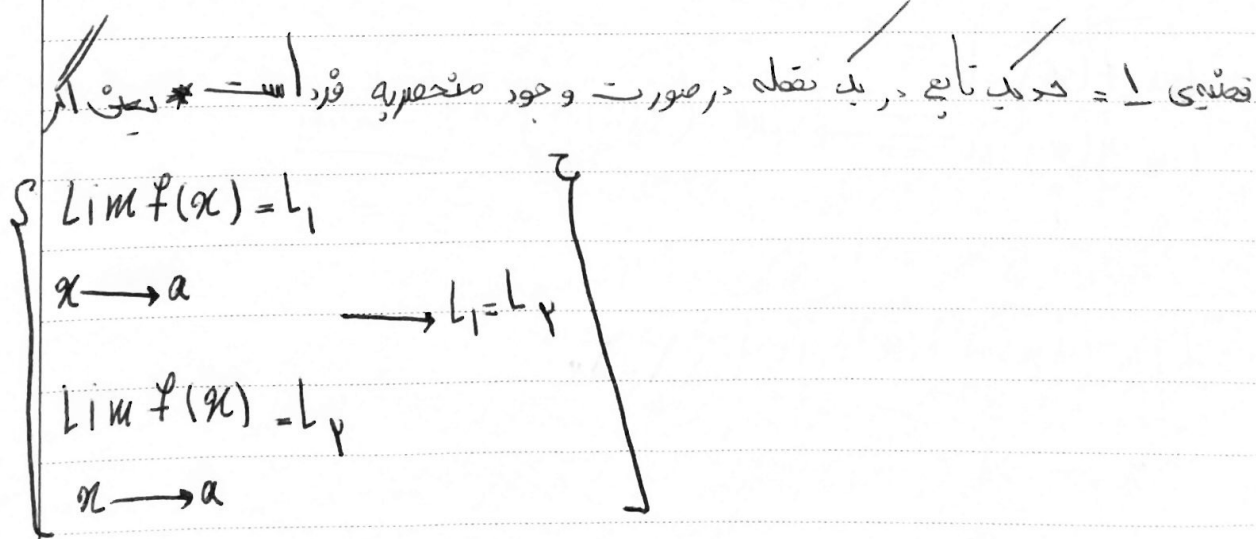 قضیه‌ی ۱ = حد یک تابع در یک نقطه در صورت وجود منحصربه فرد است * یعنی اگر
Lim f(x) = L۱
x → a
→ L۱ = L۲
Lim f(x) = L۲
x → a